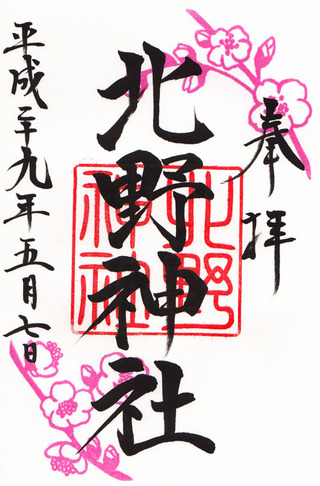 奉拝
北野神社
北野神社
平成二十九年五月七日